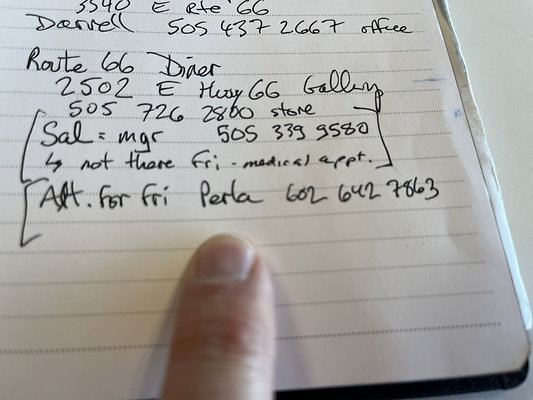 3540 E Rte 66
Darrell 505 437 2667 office
Route 66 Diner
2502 E Hwy 66 Gallup
505 726 2800 store
Sal = mgr 505 339 9580
↳ not there Fri - medical appt.
Alt. for Fri Perla 602 642 7863